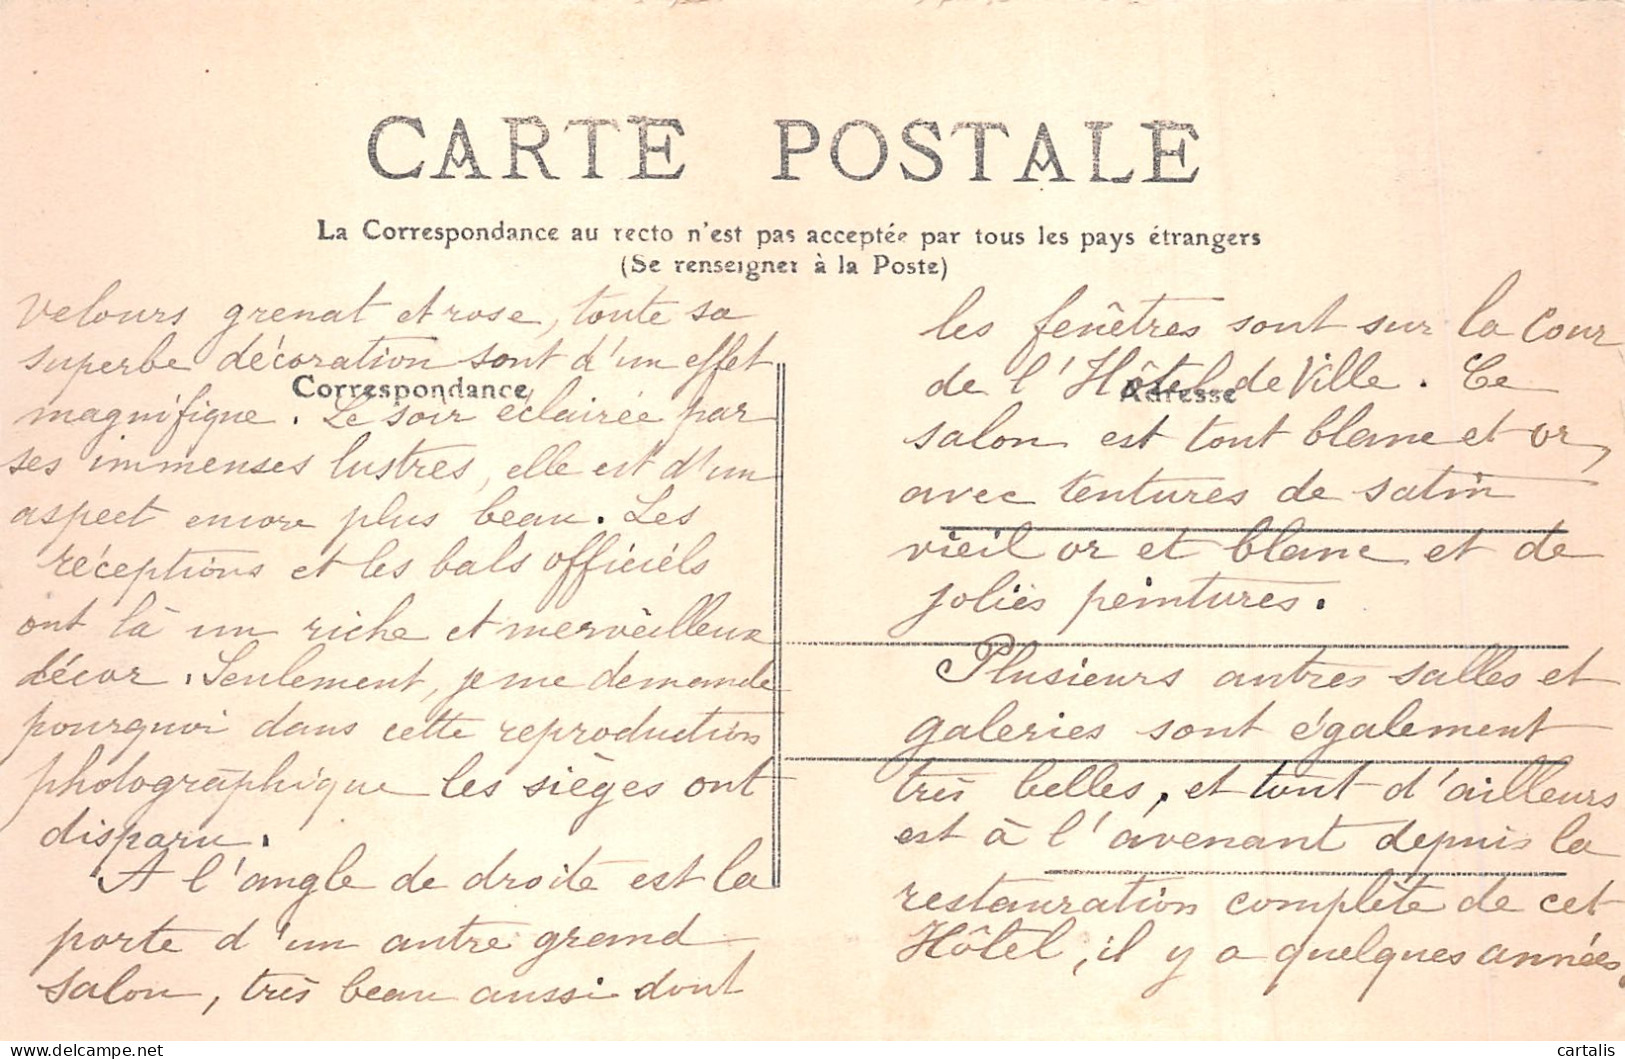 CARTE POSTALE
La Correspondance au recto n'est pas acceptée par tous les pays étrangers
(Se renseigner à la Poste)
Correspondance
velours grenat et rose, toute sa
superbe décoration sont d'un effet
magnifique. Le soir éclairée par
ses immenses lustres, elle est d'un
aspect encore plus beau. Les
réceptions et les bals officiels
ont là un riche et merveilleux
décor. Seulement, je me demande
pourquoi dans cette reproduction
photographique les sièges ont
disparu.
A l'angle de droite est la
porte d'un autre grand
salon, très beau aussi dont
Adresse
les fenêtres sont sur la cour
de l'Hôtel de Ville. Ce
salon est tout blanc et or,
avec tentures de satin
vieil or et blanc et de
jolies peintures.
Plusieurs autres salles et
galeries sont également
très belles, et tout d'ailleurs
est à l'avenant depuis la
restauration complète de cet
Hôtel, il y a quelques années.
cartalis